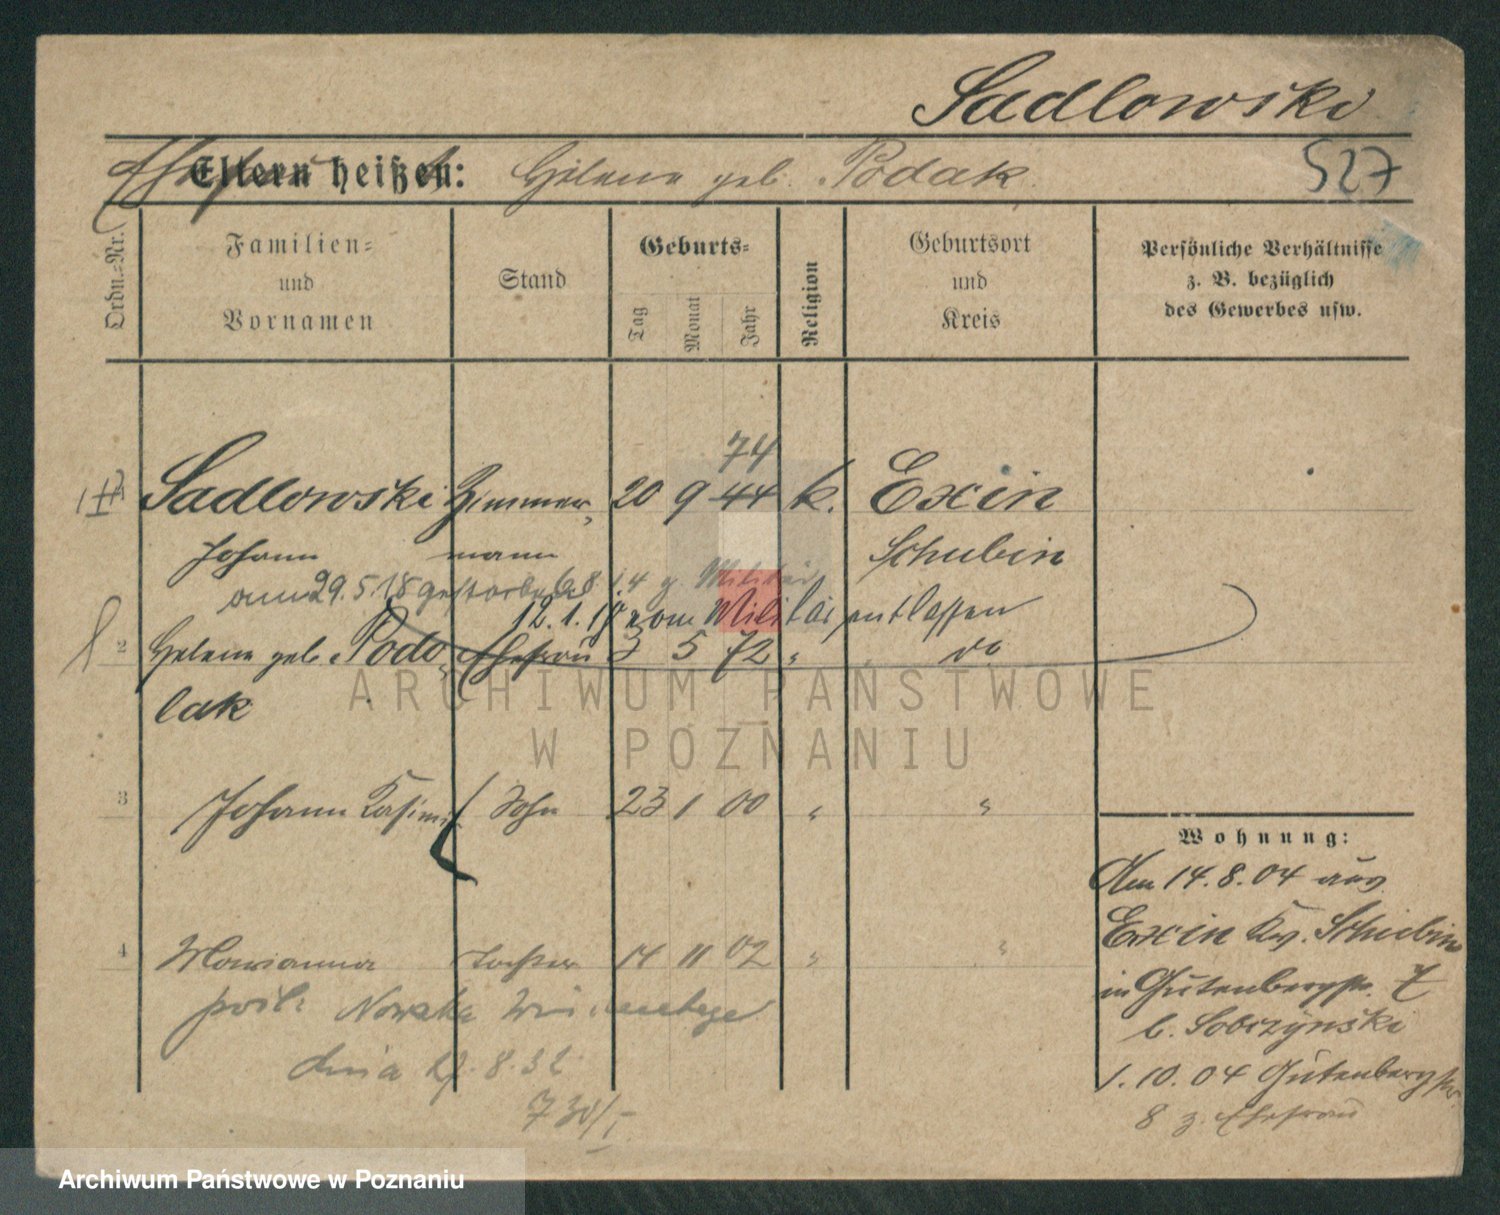 Sadlowski
Eltern heißen: Helene geb. Podak
527
Ordn.=Nr.
Familien=
und
Vornamen
Stand
Geburts=
Tag
Monat
Jahr
Religion
Geburtsort
und
Kreis
Persönliche Verhältnisse
z. B. bezüglich
des Gewerbes usw.
74
Sadlowski Zimmer 20 9 44 k. Exin
Johann mann Schubin
am 29.5.18 gestorben 8.1.4 z. Militär
12.1.19 vom Militär entlassen
2 Helene geb. Podo Ehefrau 3 5 72 " do
lak
3 Johann Kasimir Sohn 23 1 00 " "
4 Marianna Tochter 14 11 02 " "
Nowak
dnia 27.8.32
730/I
Wohnung:
Am 14.8.04 aus
Exin Kr. Schubin
in Gutenbergstr. 7
b. Sobczynski
1.10.04 Gutenbergstr
8 z. Ehefrau
ARCHIWUM PAŃSTWOWE
W POZNANIU
Archiwum Państwowe w Poznaniu